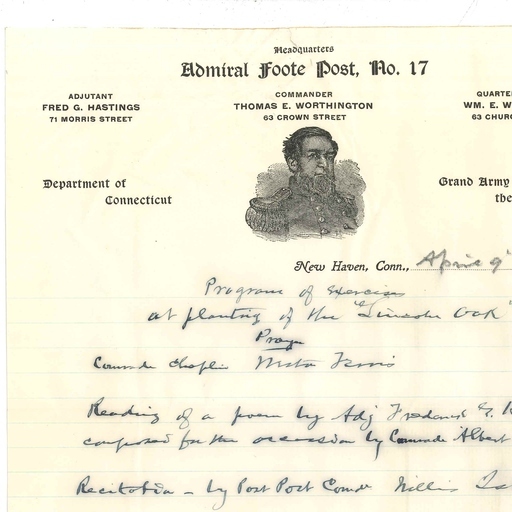 Headquarters
Admiral Foote Post, No. 17
ADJUTANT
FRED G. HASTINGS
71 MORRIS STREET
COMMANDER
THOMAS E. WORTHINGTON
63 CROWN STREET
QUARTE
WM. E. W
63 CHUR
Department of
Connecticut
Grand Army
the
New Haven, Conn., April 9
Program of Exercises
at planting of the "Lincoln Oak"
Prayer
Comrade Chaplin
Reading of a poem by Adj Frederick G. H
composed for the occasion by Comrade Albert
Recitation - by Past Post Comdr Willis